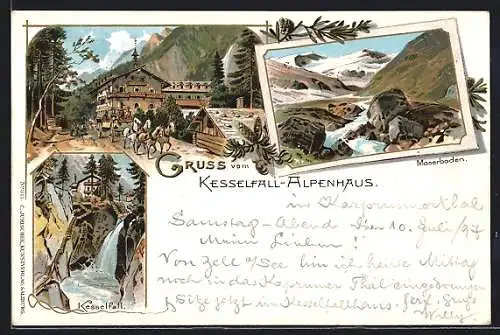 Mooserboden.
GRUSS vom
KESSELFALL-ALPENHAUS.
Kesselfall.
in
Samstag-Abend Den 10. Juli
Meine Lieben!!
Von Zell a/See bin ich heute Mittag
noch in das Kapruner Thal eingedrungen
Sitze jetzt im Kesselfallhaus.
Willy